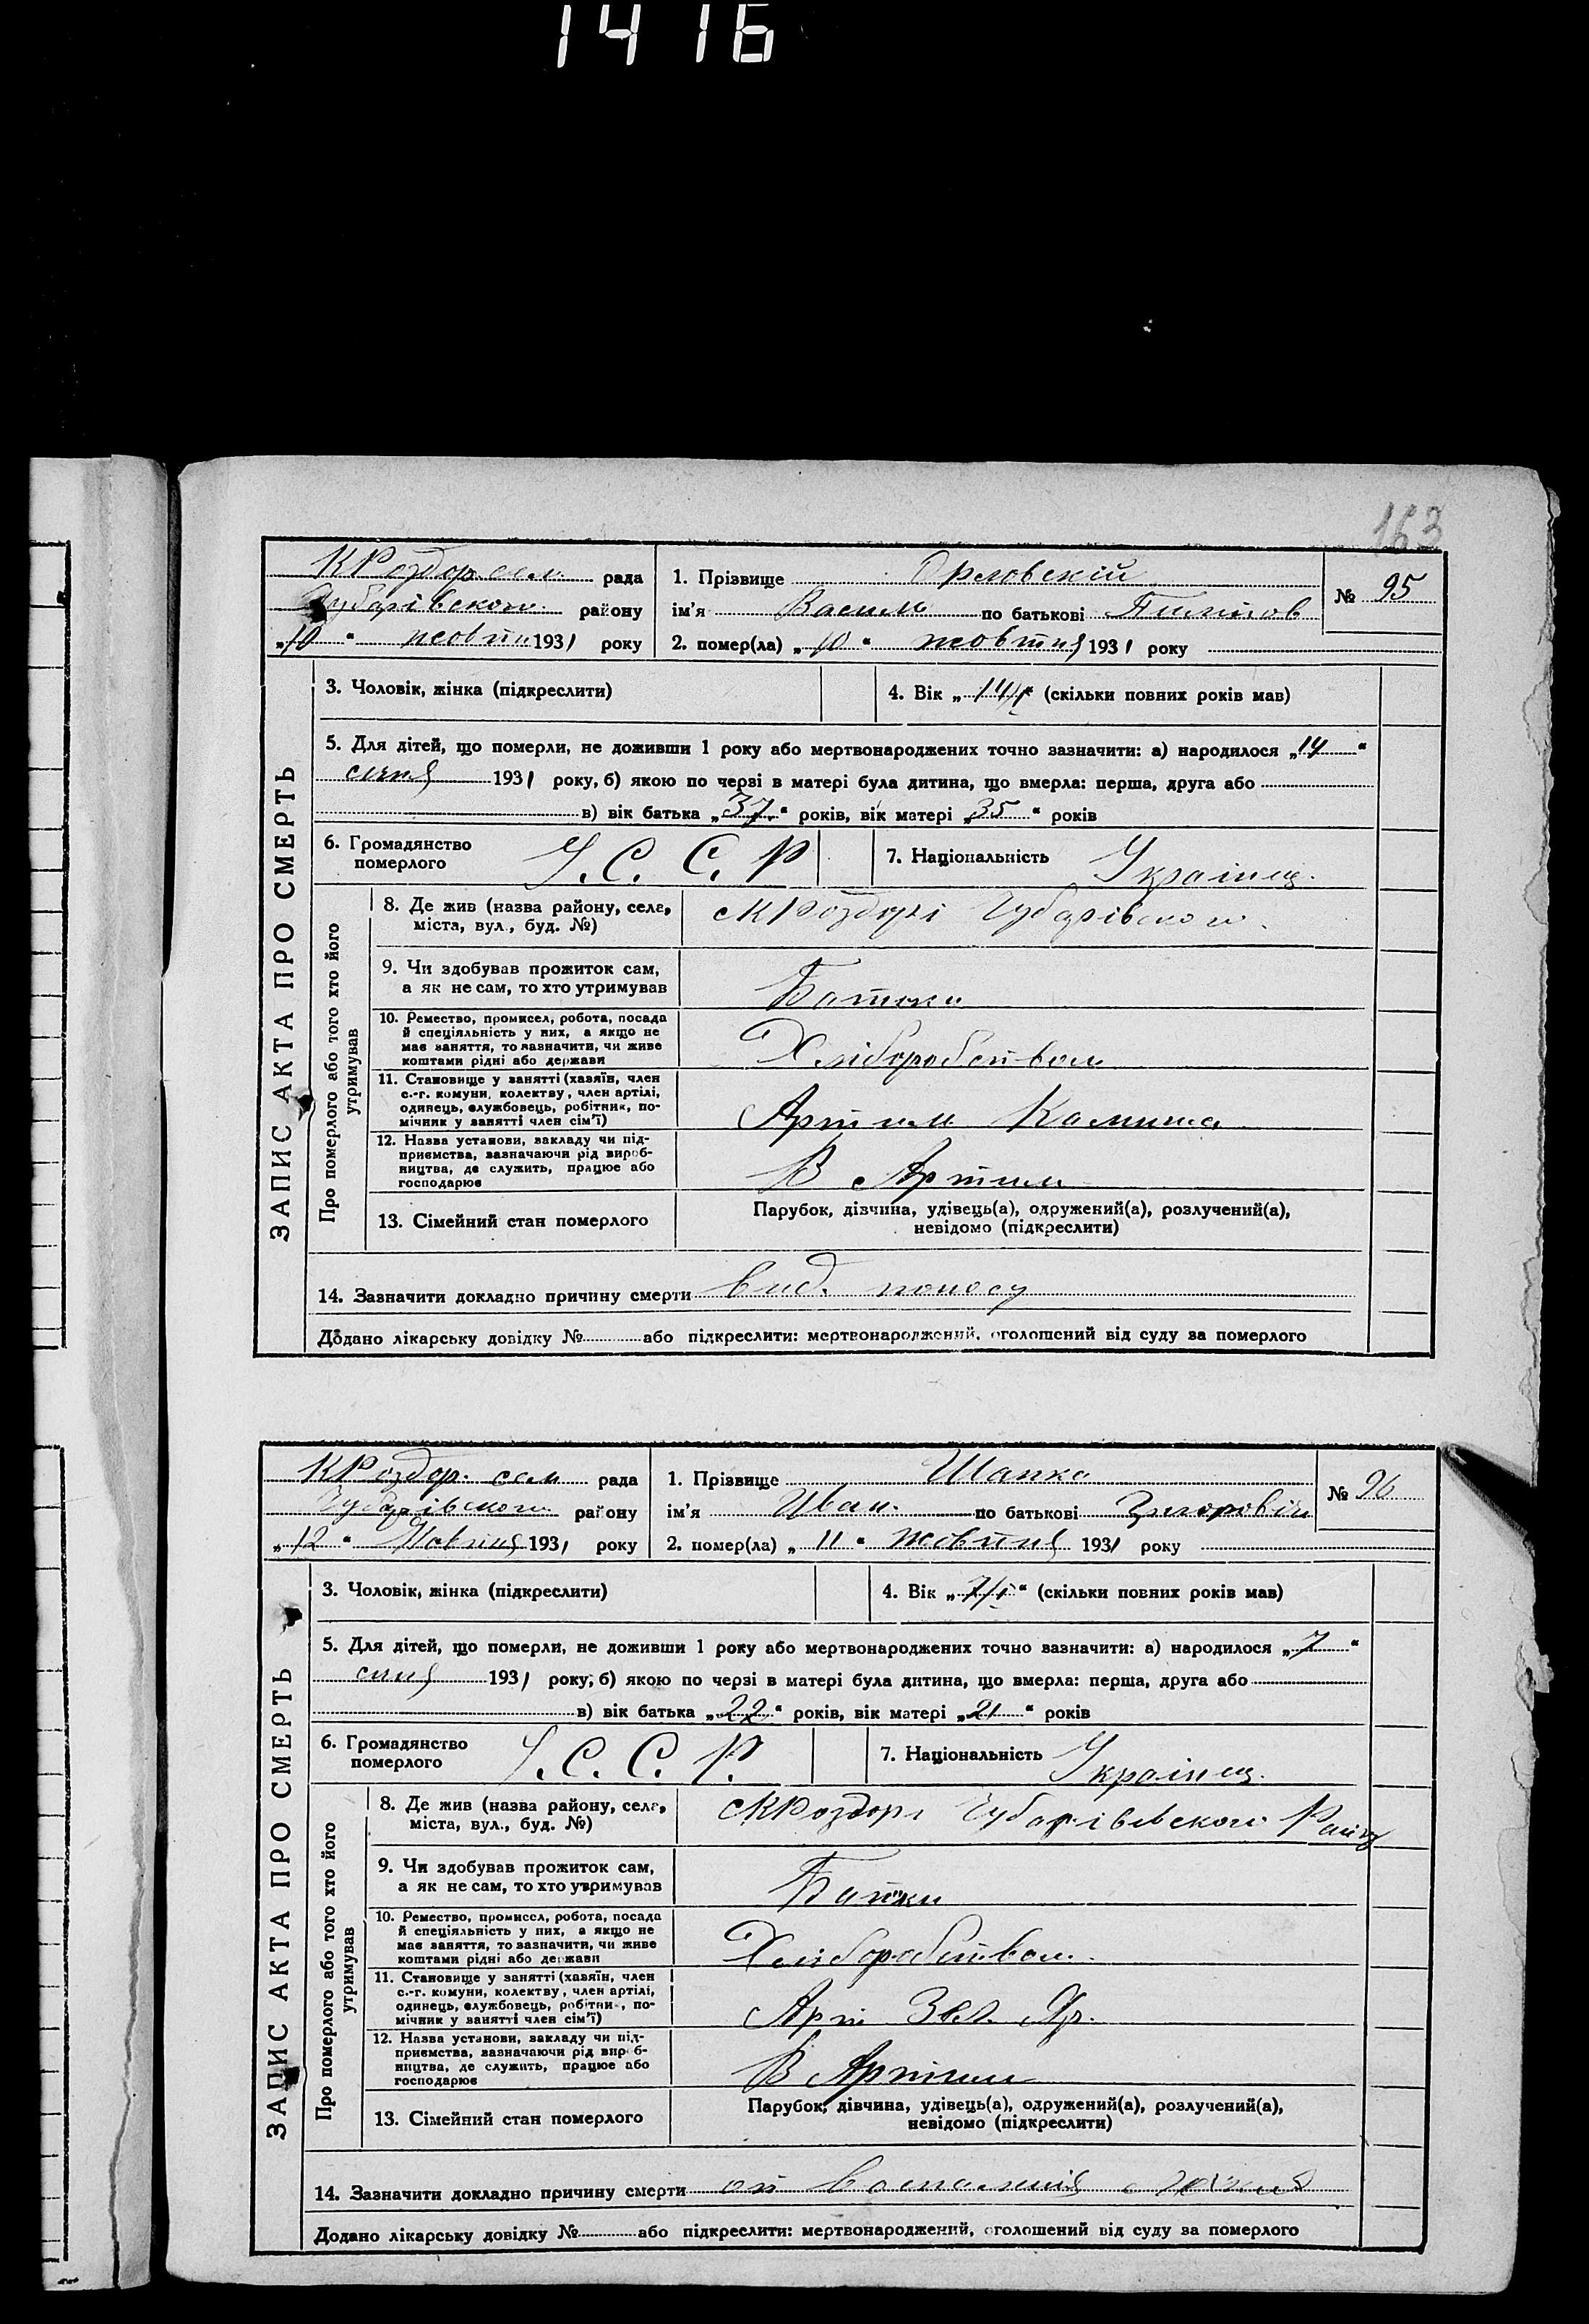 1416
163
КРоздор. сел. рада
Чубарівського району
„10“ жовтн 1931 року
1. Прізвище Орловскій
ім'я Василь по батькові
2. помер(ла) „10“ жовтня 1931 року
№ 95
ЗАПИС АКТА ПРО СМЕРТЬ
3. Чоловік, жінка (підкреслити)
4. Вік „ “ (скільки повних років мав)
5. Для дітей, що померли, не доживши 1 року або мертвонароджених точно зазначити: а) народилося „14“
січня 1931 року, б) якою по черзі в матері була дитина, що вмерла: перша, друга або
в) вік батька „37“ років, вік матері „35“ років
6. Громадянство
померлого
У.С.С.Р
7. Національність Українец.
Про померлого або того хто його
утримував
8. Де жив (назва району, села,
міста, вул., буд. №)
с КРоздорі Чубарівского.
9. Чи здобував прожиток сам,
а як не сам, то хто утримував
Батьки
10. Ремество, промисел, робота, посада
й спеціяльність у них, а якщо не
має заняття, то зазначити, чи живе
коштами рідні або держави
Хліборобством
11. Становище у занятті (хазяїн, член
с.-г. комуни, колективу, член артілі,
одинець, службовець, робітник, по-
мічник у занятті член сім'ї)
Артіль
12. Назва установи, закладу чи під-
приємства, зазначаючи рід вироб-
ництва, де служить, працює або
господарює
В Артілі
13. Сімейний стан померлого
Парубок, дівчина, удівець(а), одружений(а), розлучений(а),
невідомо (підкреслити)
14. Зазначити докладно причину смерти вид. поносу
Додано лікарську довідку № або підкреслити: мертвонароджений, оголошений від суду за померлого
КРоздор. сел рада
Чубарівського району
„12“ Жовтня 1931 року
1. Прізвище Шапка
ім'я Иван. по батькові
2. помер(ла) „11“ жовтня 1931 року
№ 96
ЗАПИС АКТА ПРО СМЕРТЬ
3. Чоловік, жінка (підкреслити)
4. Вік „ “ (скільки повних років мав)
5. Для дітей, що померли, не доживши 1 року або мертвонароджених точно зазначити: а) народилося „7“
січня 1931 року, б) якою по черзі в матері була дитина, що вмерла: перша, друга або
в) вік батька „22“ років, вік матері „21“ років
6. Громадянство
померлого
У.С.С.Р.
7. Національність Українец.
Про померлого або того хто його
утримував
8. Де жив (назва району, села,
міста, вул., буд. №)
с КРоздорі Чубарівського Райну
9. Чи здобував прожиток сам,
а як не сам, то хто утримував
Батьки
10. Ремество, промисел, робота, посада
й спеціяльність у них, а якщо не
має заняття, то зазначити, чи живе
коштами рідні або держави
Хліборобством.
11. Становище у занятті (хазяїн, член
с.-г. комуни, колективу, член артілі,
одинець, службовець, робітник, по-
мічник у занятті член сім'ї)
Арт Зел. Яр.
12. Назва установи, закладу чи під-
приємства, зазначаючи рід вироб-
ництва, де служить, працює або
господарює
В Артілі
13. Сімейний стан померлого
Парубок, дівчина, удівець(а), одружений(а), розлучений(а),
невідомо (підкреслити)
14. Зазначити докладно причину смерти от
Додано лікарську довідку № або підкреслити: мертвонароджений, оголошений від суду за померлого